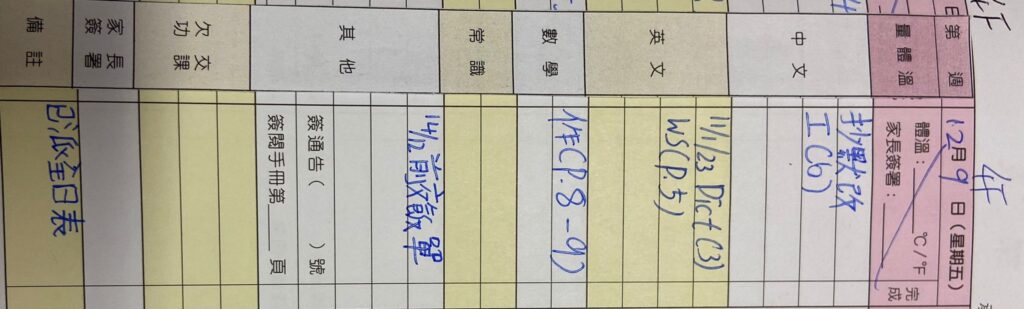 4F
4F
第 週
12月9日(星期五)
量體溫
體溫:____°C/°F
家長簽署:____
完成
中文
抄默改
工(6)
英文
11/1/23 Dict(3)
WS(P.5)
數學
作(P.8-9)
常識
其他
14/12前交飯單
簽通告( )號
簽閱手冊第____頁
欠交功課
家長簽署
備註
已派全日表